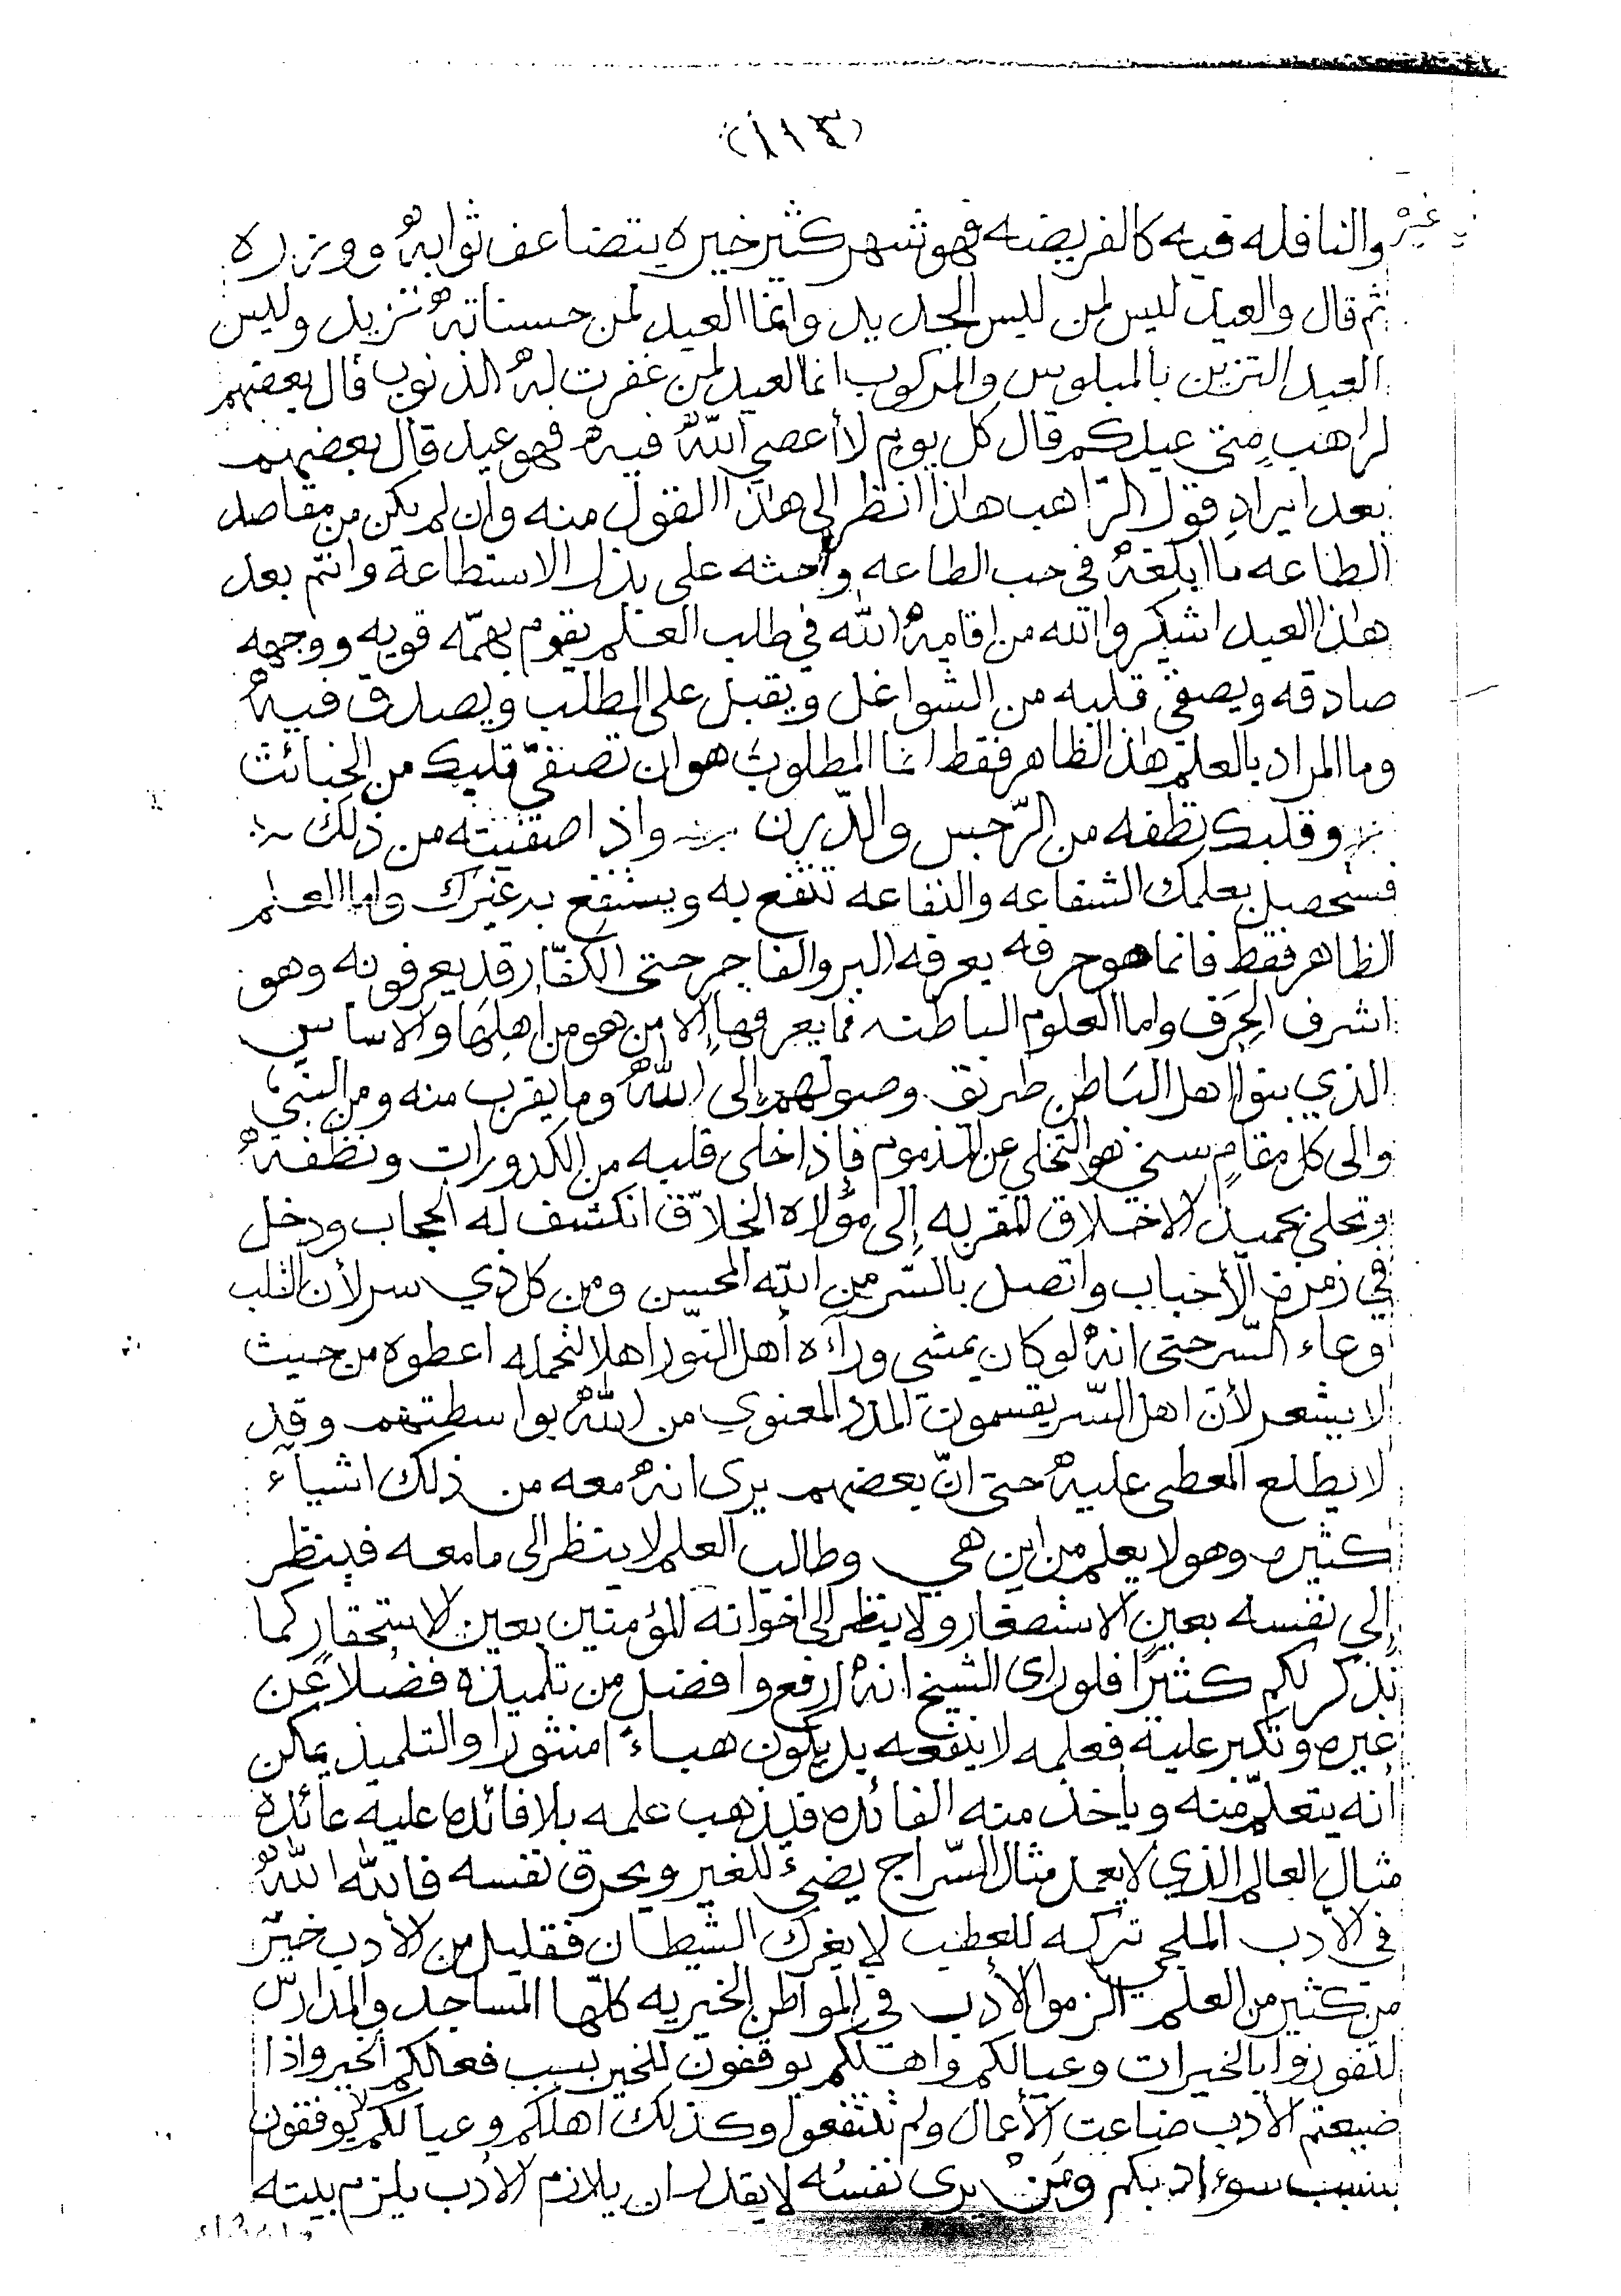 (١١٣)
غيره
والنافله فيه كالفريضه فهو شهر كثير خيره يتضاعف ثوابه ووزره
ثم قال والعيد ليس لمن لبس الجديد وانما العيد لمن حسناته تزيد وليس
العيد التزين بالملبوس والمركوب انما العيد لمن غفرت له الذنوب قال بعضهم
لراهب متى عيدكم قال كل يوم لا أعصي الله فيه فهو عيد قال بعضهم
بعد ايراد قول الرّاهب هاذا انظر إلى هاذا القول منه وان لم يكن من مقاصد
الطاعه ما ابلغه في حب الطاعه وأحثه على بذل الاستطاعة وانتم بعد
هاذا العيد اشكروا الله من اقامه الله في طلب العلم يقوم بهمّه قويه ووجهه
صادقه ويصفي قلبه من الشواغل ويقبل على الطلب ويصدق فيه
وما المراد بالعلم هذا الظاهر فقط انما المطلوب هو ان تصفّي قلبك من الخبائث
وقلبك نظفه من الرّجس والدّرن واذا صفيته من ذلك
فستحصل بعلمك الشفاعه والنفاعه تنتفع به وينتفع به غيرك واما العلم
الظاهر فقط فانما هو حرفه يعرفه البر والفاجر حتى الكفّار قد يعرفونه وهو
اشرف الحِرَف واما العلوم الباطنه فما يعرفها إلا من هو من أهلها والاساس
الذي بنوا اهل البَاطن طريق وصولهم إلى الله وما يقرب منه ومن النبي
والى كل مقامٍ سني هو التخلي عن المذموم فإذا خلى قلبه من الكدورات ونظّفه
وتحلى بجميل الاخلاق المقربه إلى مولاه الخلاّق انكشف له الحجاب ودخل
في زمرة الأحباب واتصل بالسّر من الله المحسن ومن كل ذي سر لأن القلب
وعاء السّر حتى انه لو كان يمشي ورآءه أهل النّور اهلا لتحمله اعطوه من حيث
لا يشعر لأن اهل السّر يقسمون المدد المعنوي من الله بواسطتهم وقد
لا يطلع المعطى عليه حتى انّ بعضهم يرى انه معه من ذلك اشيآء
كثيره وهو لا يعلم من اين هي وطالب العلم لا ينظر الى ما معه فينظر
إلى نفسه بعين الاستصغار ولا ينظر الى اخوانه المؤمنين بعين الاستحقار كما
نذكر لكم كثيرًا فلو رأى الشيخ انه ارفع وافضل من تلميذه فضلاً عن
غيره وتكبر عليه فعلمه لا ينفعه بل يكون هباءً امنثورا والتلميذ يمكن
أنه يتعلّم منه ويأخذ منه الفائده فيذهب علمه بلا فائده عليه عائده
مثال العالم الذي لا يعمل مثال السّراج يضيء للغير ويحرق نفسه فالله الله
في الأدب الملجي تركه للعطب لا يغرك الشيطان فقليل من الأدب خير
من كثير من العلم الزموا الأدب في المواطن الخيريه كلّها المساجد والمدارس
لتفوزوا بالخيرات وعيالكم واهلكم يوفقون للخير بسبب فعالكم الخير واذا
ضيعتم الأدب ضاعت الأعمال ولم تنتفعوا وكذلك اهلكم وعيالكم لا يوفقون
بسبب سوء ادبكم ومن يرى نفسُه لا يقدر ان يلازم الأدب يلزم بيته